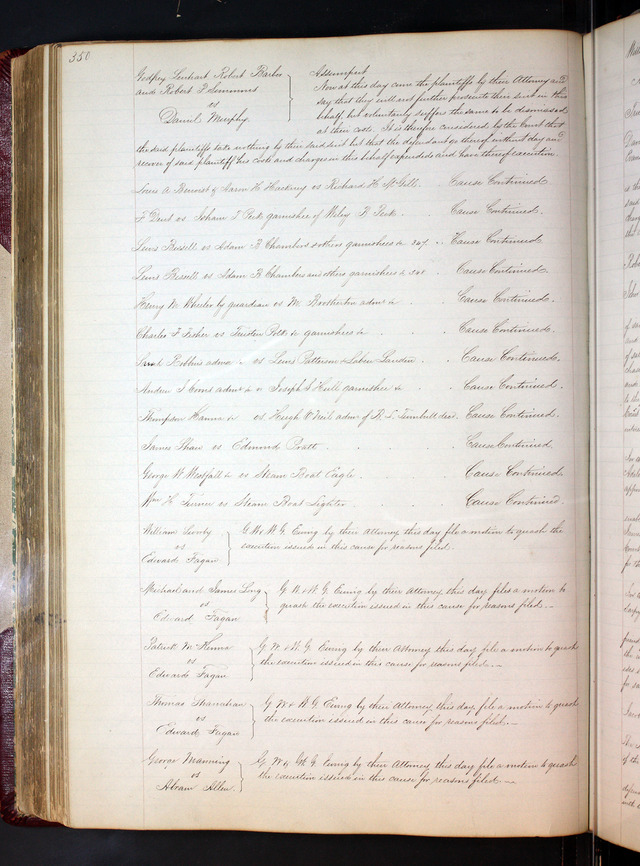 350
Godfrey Lenhart Robert Barker
and Robert P Simmons
vs
Daniel Murphy
Assumpsit
Now at this day come the plaintiffs by their Attorney and
say that they will not further prosecute their suit in this
behalf, but voluntarily suffers the same to be dismissed
at their costs. It is therefore considered by the Court that
the said plaintiffs take nothing by their said suit but that the defendant go thereof without day and
recover of said plaintiffs his costs and charges in this behalf expended and have thereof execution.
Louis A Benoist & Aaron H Hackney vs Richard H McGill. Cause Continued.
F Dent vs Johan T Peck garnishee of Wiley R Peck. Cause Continued.
Lewis Bissell vs Adam B Chambers & others garnishees &c 347. Cause Continued.
Lewis Bissell vs Adam B Chambers and others garnishees &c 348 Cause Continued.
Henry M Wheeler by guardian vs M Brotherton admr &c Cause Continued.
Charles F Fisher vs Tristen Polk &c garnishees &c Cause Continued.
Sarah Robbins admx vs Lewis Patterson & Laben Landen. Cause Continued.
Andrew J Cons admr &c vs Joseph S Hull garnishee &c Cause Continued.
Thompson Hanna &c vs Hugh O'Neil admr of R S Turnbull decd. Cause Continued.
James Shaw vs Edmond Pratt Cause Continued.
George W Westfall &c vs Steam Boat Eagle Cause Continued.
Wm H Turner vs Steam Boat Lighter Cause Continued
William
vs
Edward Fagan
G W & W G Ewing by their Attorney this day file a motion to quash the
execution issued in this cause for reasons filed.
Michael and James Long
vs
Edward Fagan
G W & W G Ewing by their Attorney this day files a motion to
quash the execution issued in this cause for reasons filed.
Patrick McKenna
vs
Edward Fagan
G W & W G Ewing by their Attorney this day file a motion to quash
the execution issued in this cause for reasons filed.
Thomas Shanahan
vs
Edward Fagan
G W & W G Ewing by their Attorney this day file a motion to quash
the execution issued in this cause for reasons filed.
George Manning
vs
Abram Allen
G W & W G Ewing by their Attorney this day file a motion to quash
the execution issued in this cause for reasons filed.